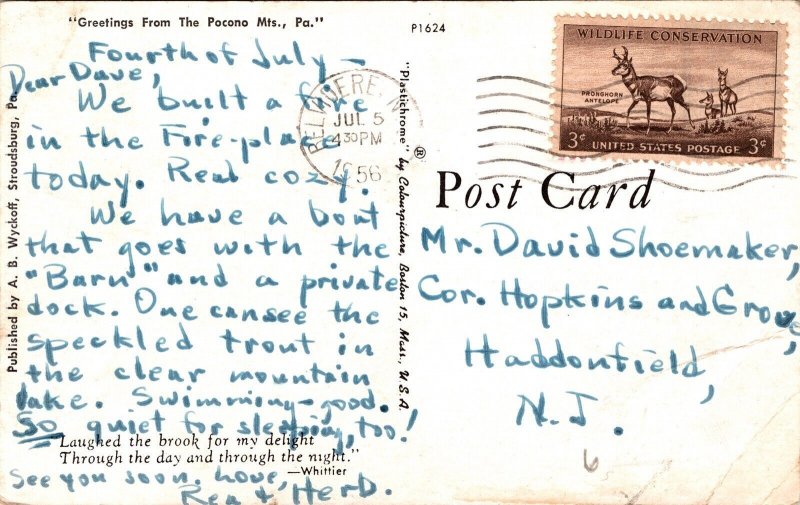 "Greetings From The Pocono Mts., Pa."
P1624
Fourth of July —
Dear Dave,
We built a fire
in the Fire-place
today. Real cozy.
We have a boat
that goes with the
"Barn" and a private
dock. One cansee the
speckled trout in
the clear mountain
lake. Swimming—good.
So quiet for sleeping, too!
"Laughed the brook for my delight
Through the day and through the night."
—Whittier
See you soon. Love,
Rea + Herb.
Published by A. B. Wyckoff, Stroudsburg, Pa.
"Plastichrome" ® by Colourpicture, Boston 15, Mass., U.S.A.
JUL 5
4 30 PM
1956
WILDLIFE CONSERVATION
PRONGHORN
ANTELOPE
3¢ 3¢
UNITED STATES POSTAGE
Post Card
Mr. David Shoemaker,
Cor. Hopkins and Grove,
Haddonfield,
N.J.
6